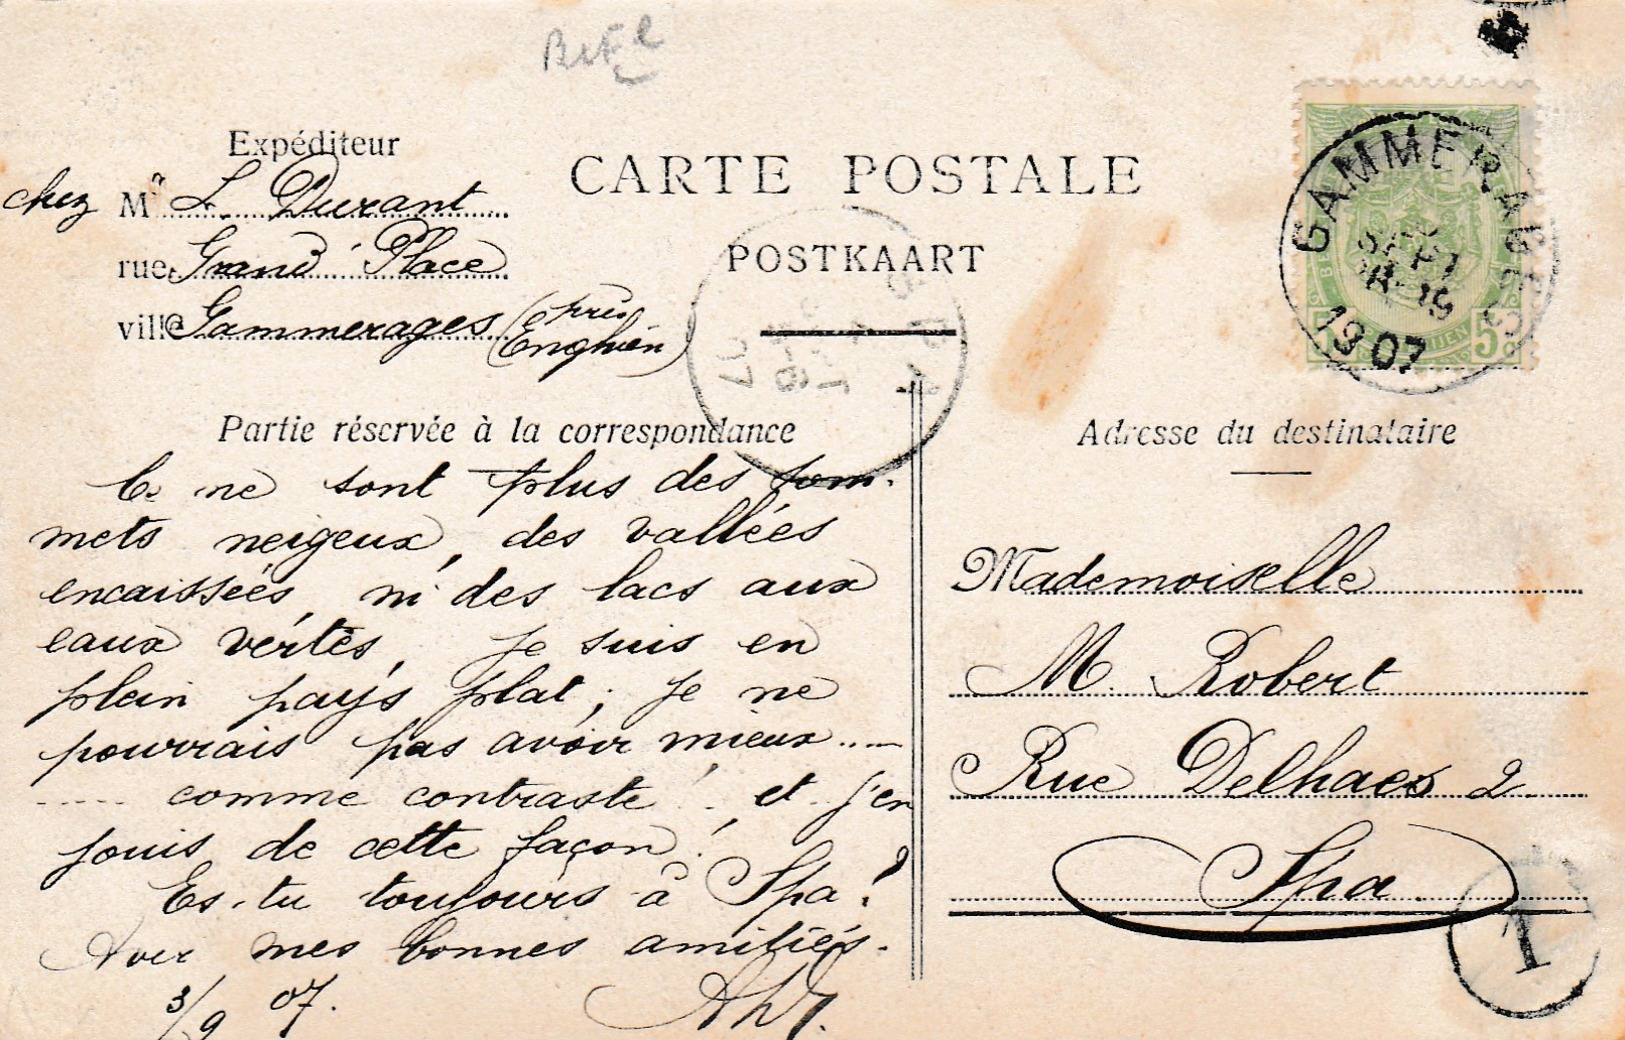 Expéditeur
chez Mr L. Durant
rue Grand' Place
ville Gammerages (près Enghien)
CARTE POSTALE
POSTKAART
GAMMERAGES
SEPT
1907
5 5
Partie réservée à la correspondance
Ce ne sont plus des som-
mets neigeux, des vallées
encaissées, ni des lacs aux
eaux vertes, je suis en
plein pays plat; je ne
pourrais pas avoir mieux.....
..... comme contraste! et j'en
jouis de cette façon!
Es-tu toujours à Spa?
Avec mes bonnes amitiés.
3/9 07.
Adresse du destinataire
Mademoiselle
M. Robert
Rue Delhaes 2
Spa.
1